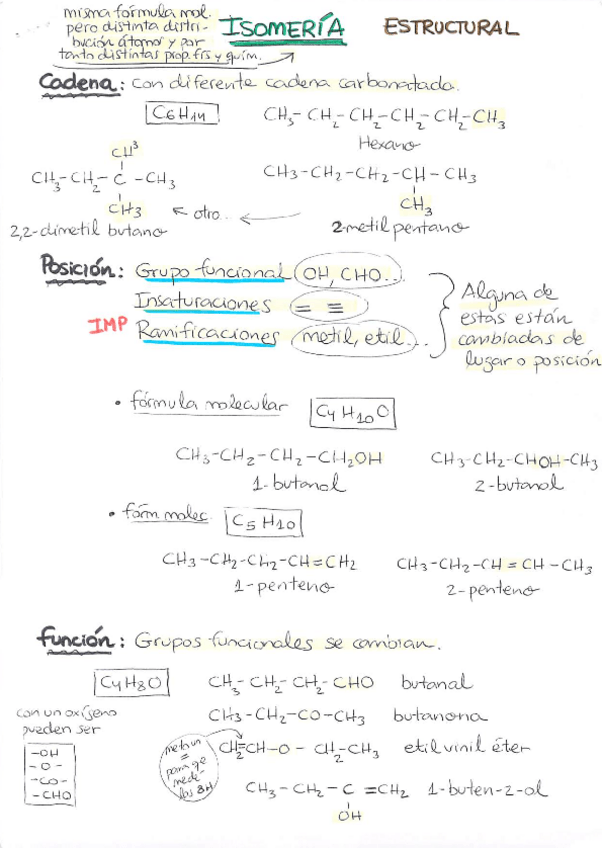 misma fórmula mol.
pero distinta distri-
bución átomos y por
tanto distintas prop. fís y quím.
ISOMERÍA ESTRUCTURAL
Cadena: con diferente cadena carbonatada.
C6H14 CH3-CH2-CH2-CH2-CH2-CH3
Hexano
CH3
CH3-CH2-C-CH3 CH3-CH2-CH2-CH-CH3
CH3 ← otro.. CH3
2,2-dimetil butano 2-metil pentano
Posición: Grupo funcional (OH, CHO..
Insaturaciones = ≡
IMP Ramificaciones (metil, etil...
Alguna de
estas están
cambiadas de
lugar o posición
• fórmula molecular C4H10O
CH3-CH2-CH2-CH2OH CH3-CH2-CHOH-CH3
1-butanol 2-butanol
• fórm molec. C5H10
CH3-CH2-CH2-CH=CH2 CH3-CH2-CH=CH-CH3
1-penteno 2-penteno
función: Grupos funcionales se cambian.
C4H8O CH3-CH2-CH2-CHO butanal
con un oxígeno
pueden ser
-OH
-O-
-CO-
-CHO
CH3-CH2-CO-CH3 butanona
meta un
=
para que
me dé
los 8H
CH2=CH-O-CH2-CH3 etil vinil éter
CH3-CH2-C=CH2 1-buten-2-ol
OH